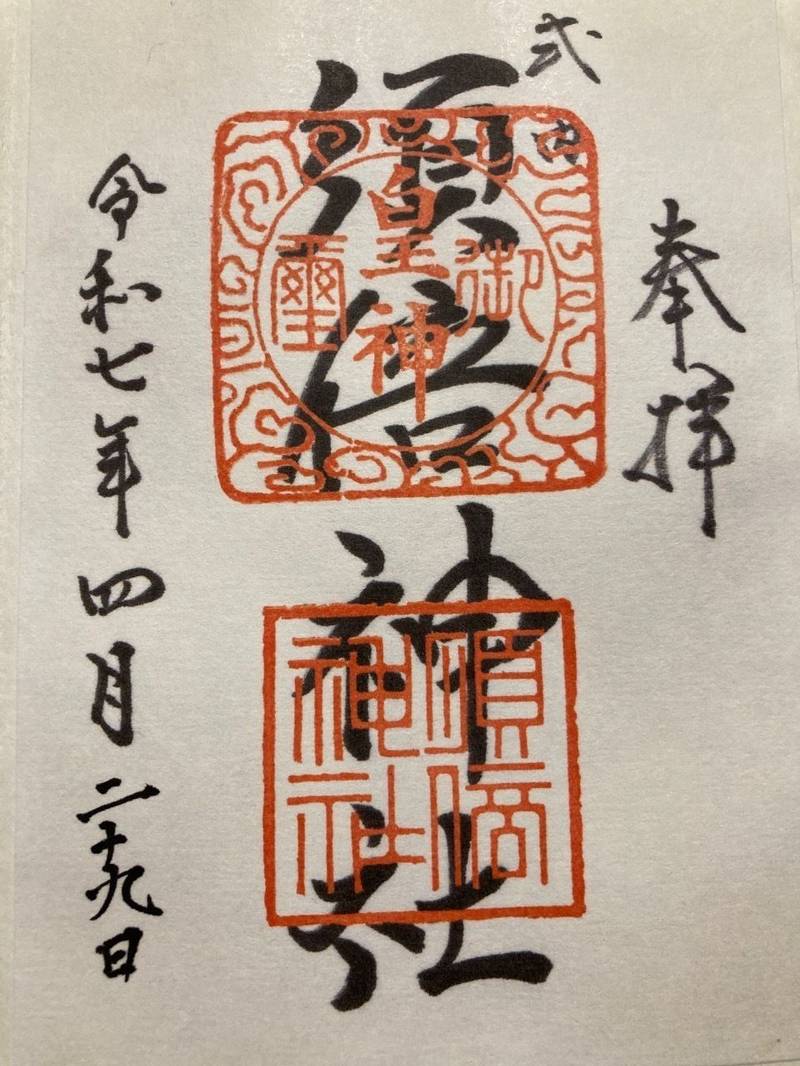 奉拝
式内
須倍神社
皇神
御璽
須倍
神社
令和七年四月二十九日